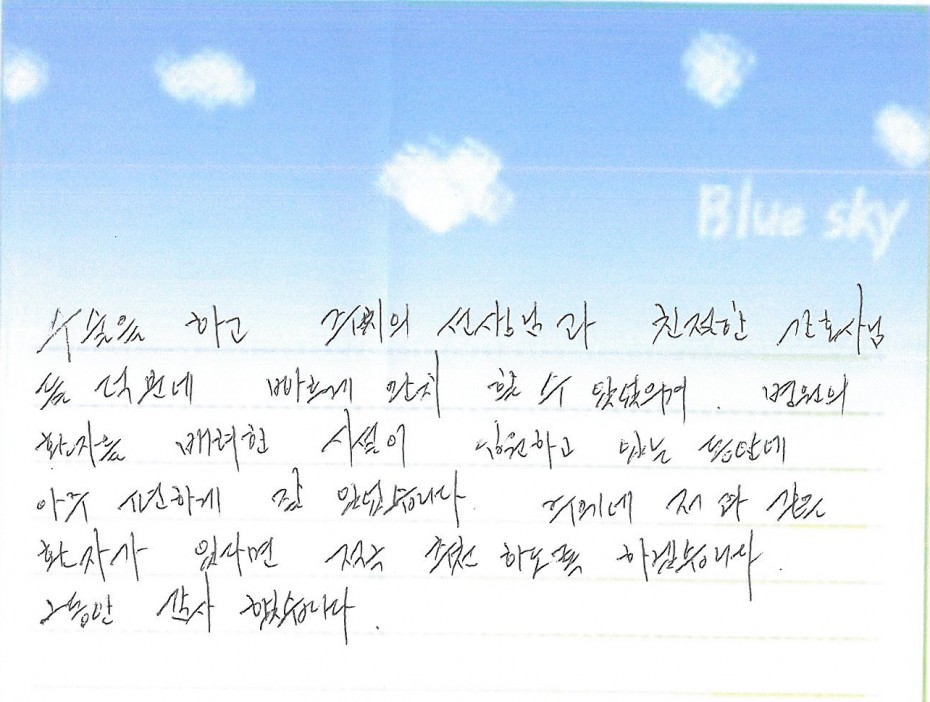 Blue sky
수술을 하고 주위의 선생님과 친절한 간호사님
들 덕분에 빠르게 완치 할 수 있었으며. 병원의
환자를 배려한 시설이 입원하고 있는 동안에
아주 편하게 잘 있었습니다. 주위에 저와 같은
환자가 있다면 적극 추천 하도록 하겠습니다.
그동안 감사 했습니다.